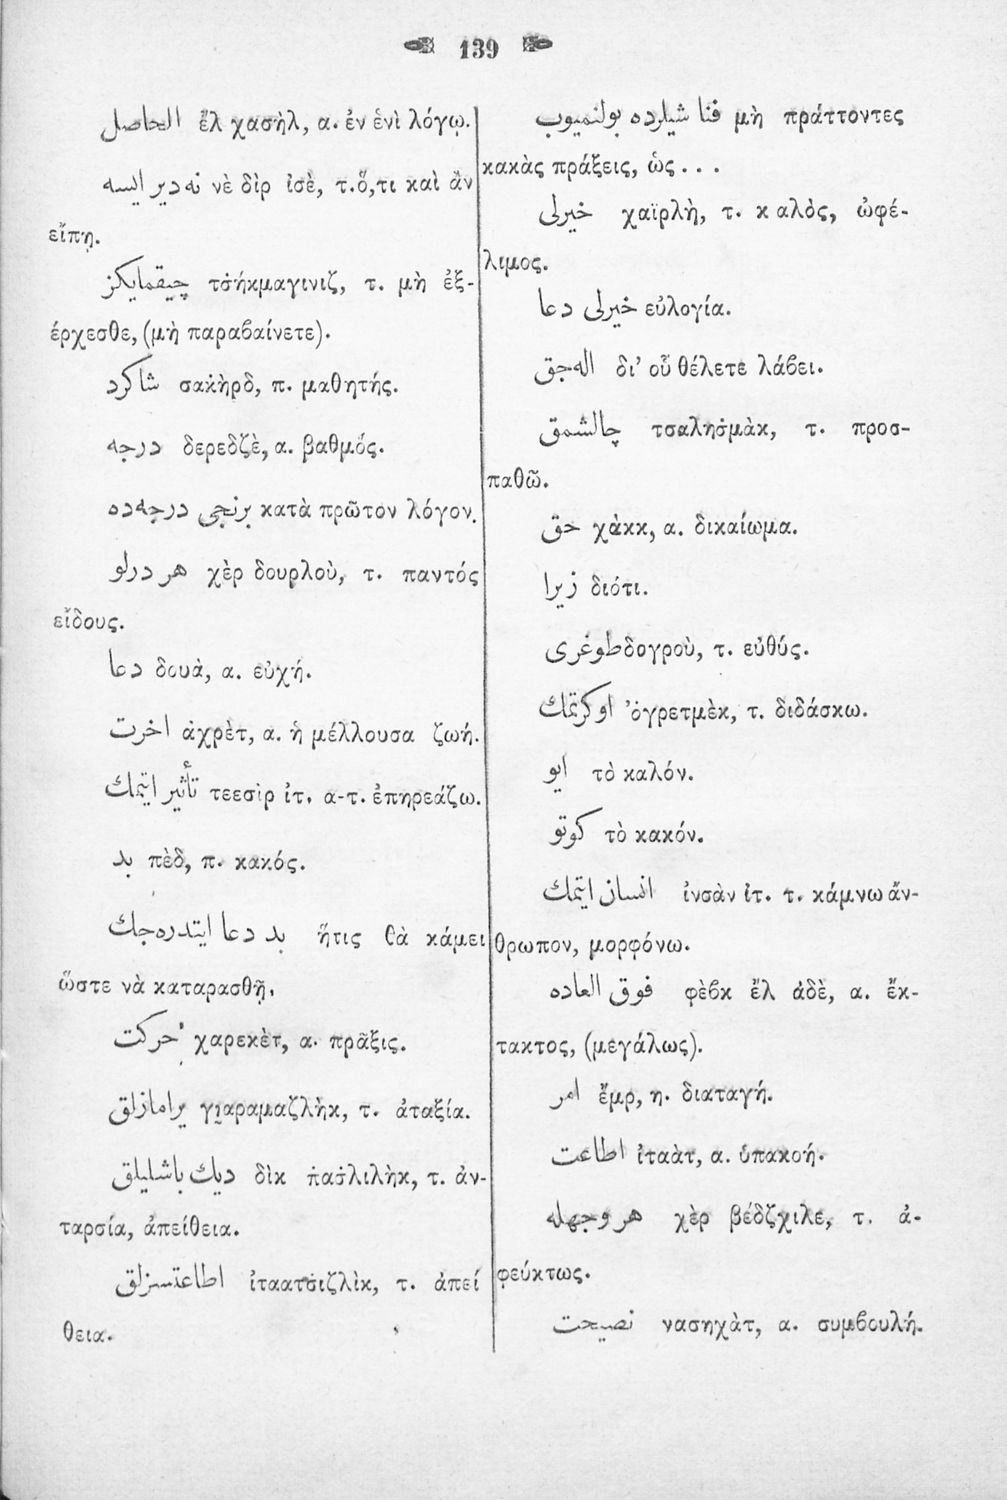 139
الحاصل ἔλ χασὴλ, α. ἐν ἑνὶ λόγῳ.
نه دیر ایسه νὲ δὶρ ἰσὲ, τ.ὅ,τι καὶ ἂν
εἴπῃ.
چیقمایكز τσήκμαγινιζ, τ. μὴ ἐξ-
έρχεσθε, (μὴ παραβαίνετε).
شاكرد σακὴρδ, π. μαθητής.
درجه δερεδζὲ, α. βαθμός.
برنجی درجه ده κατὰ πρῶτον λόγον.
هر درلو χὲρ δουρλοὺ, τ. παντός
εἴδους.
دعا δουὰ, α. εὐχή.
اخرت ἀχρὲτ, α. ἡ μέλλουσα ζωή.
تأثیر ایتمك τεεσὶρ ἰτ. α-τ. ἐπηρεάζω.
بد πὲδ, π. κακός.
بد دعا ایتدره جك ἥτις θὰ κάμει
ὥστε νὰ καταρασθῇ.
حركت χαρεκὲτ, α. πρᾶξις.
یرامازلق γιαραμαζλὴκ, τ. ἀταξία.
دیك باشلیلق δὶκ πασλιλὴκ, τ. ἀν-
ταρσία, ἀπείθεια.
اطاعتسزلق ἰταατσιζλὶκ, τ. ἀπεί
θεια.
فنا شیلرده بولنمیوب μὴ πράττοντες
κακὰς πράξεις, ὡς . . .
خیرلی χαϊρλὴ, τ. καλὸς, ὠφέ-
λιμος.
خیرلی دعا εὐλογία.
اله جق δι’ οὗ θέλετε λάβει.
چالشمق τσαλησμὰκ, τ. προσ-
παθῶ.
حق χὰκκ, α. δικαίωμα.
زیرا διότι.
طوغری δογροὺ, τ. εὐθύς.
اوكرتمك ὀγρετμὲκ, τ. διδάσκω.
ایو τὸ καλόν.
كوتو τὸ κακόν.
انسان ایتمك ἰνσὰν ἰτ. τ. κάμνω ἄν-
θρωπον, μορφόνω.
فوق العاده φὲβκ ἔλ ἀδὲ, α. ἔκ-
τακτος, (μεγάλως).
امر ἔμρ, η. διαταγή.
اطاعت ἰταὰτ, α. ὑπακοή.
هر وجهله χὲρ βέδζχιλε, τ. ἀ-
φεύκτως.
نصیحت νασηχὰτ, α. συμβουλή.